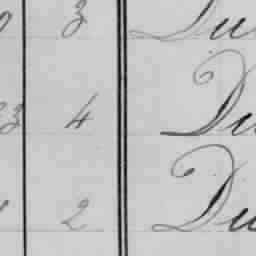 3 Du
23 4 Du
2 Du